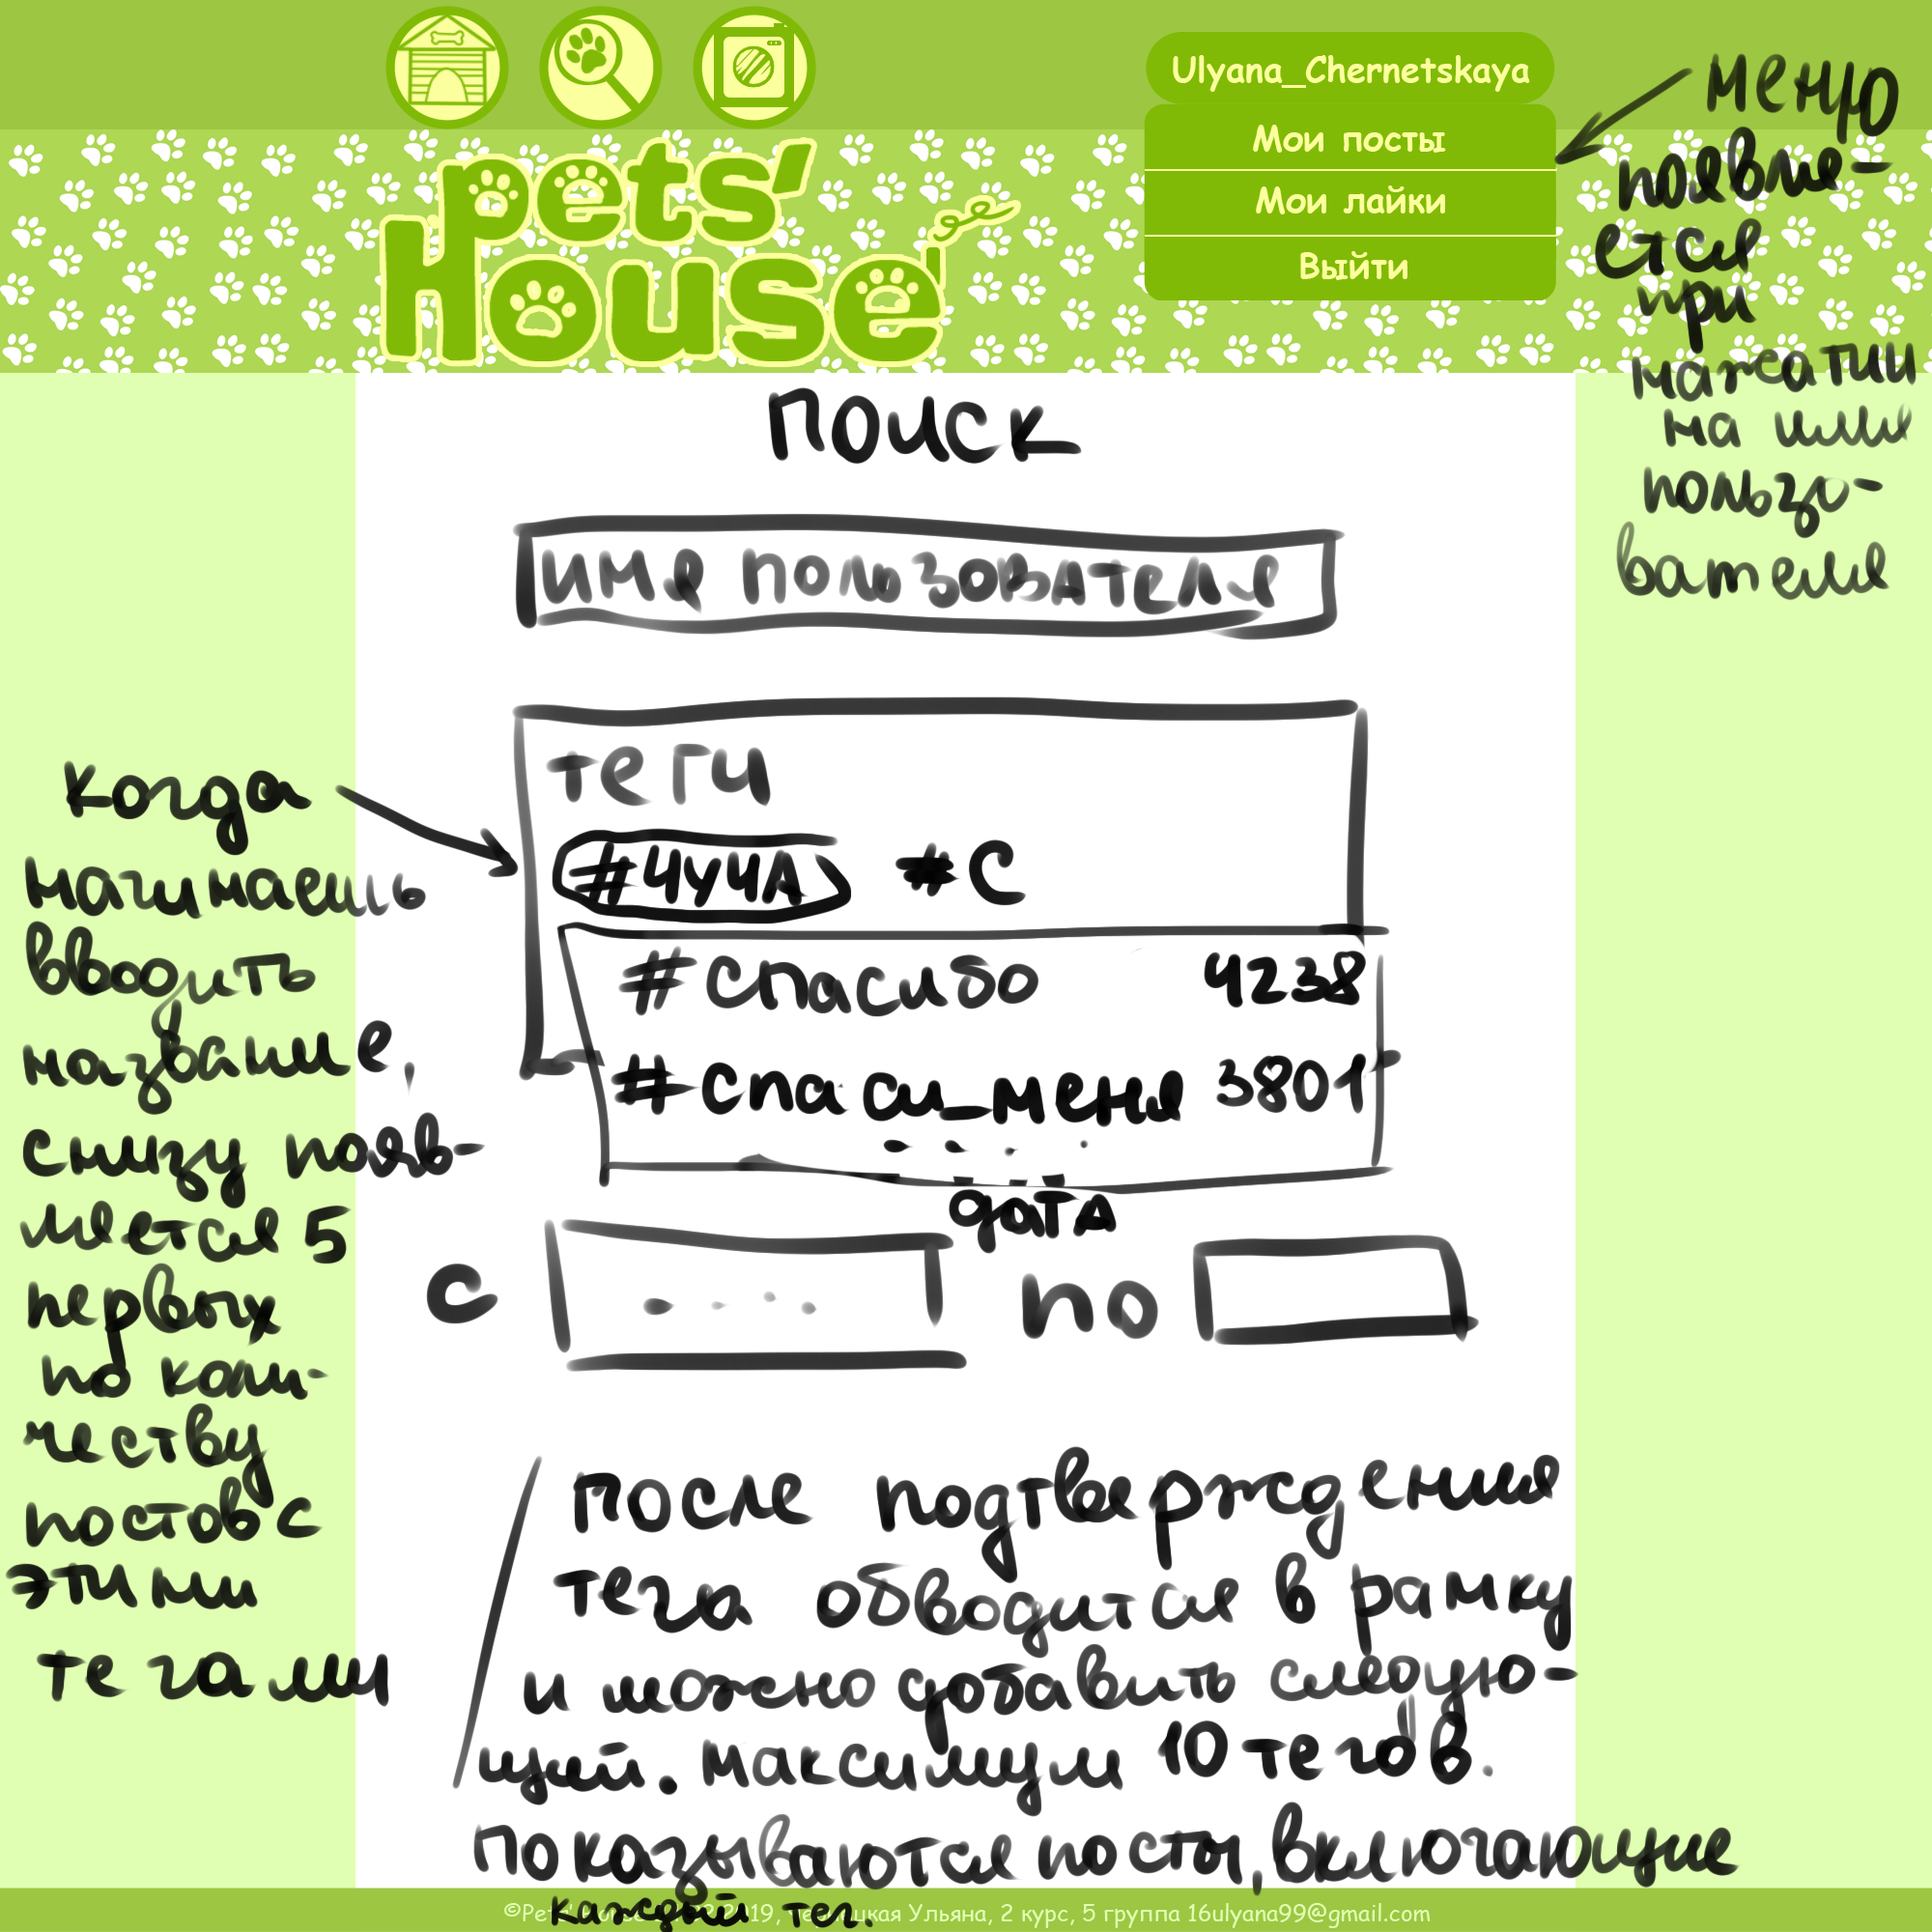 Ulyana_Chernetskaya
Мои посты
Мои лайки
Выйти
pets'
house
меню
появля-
ется
при
нажатии
на имя
пользо-
вателя
ПОИСК
ИМЯ ПОЛЬЗОВАТЕЛЯ
теги
#ЧУЧА #С
#спасибо 4238
#спаси_меня 3801
дата
с .... по
когда
начинаешь
вводить
название,
снизу появ-
ляется 5
первых
по коли-
честву
постов с
этими
тегами
После подтверждения
тега обводится в рамку
и можно добавить следую-
щий. Максимум 10 тегов.
Показываются посты, включающие
каждый тег.
©Pets' 2019, Чернецкая Ульяна, 2 курс, 5 группа 16ulyana99@gmail.com